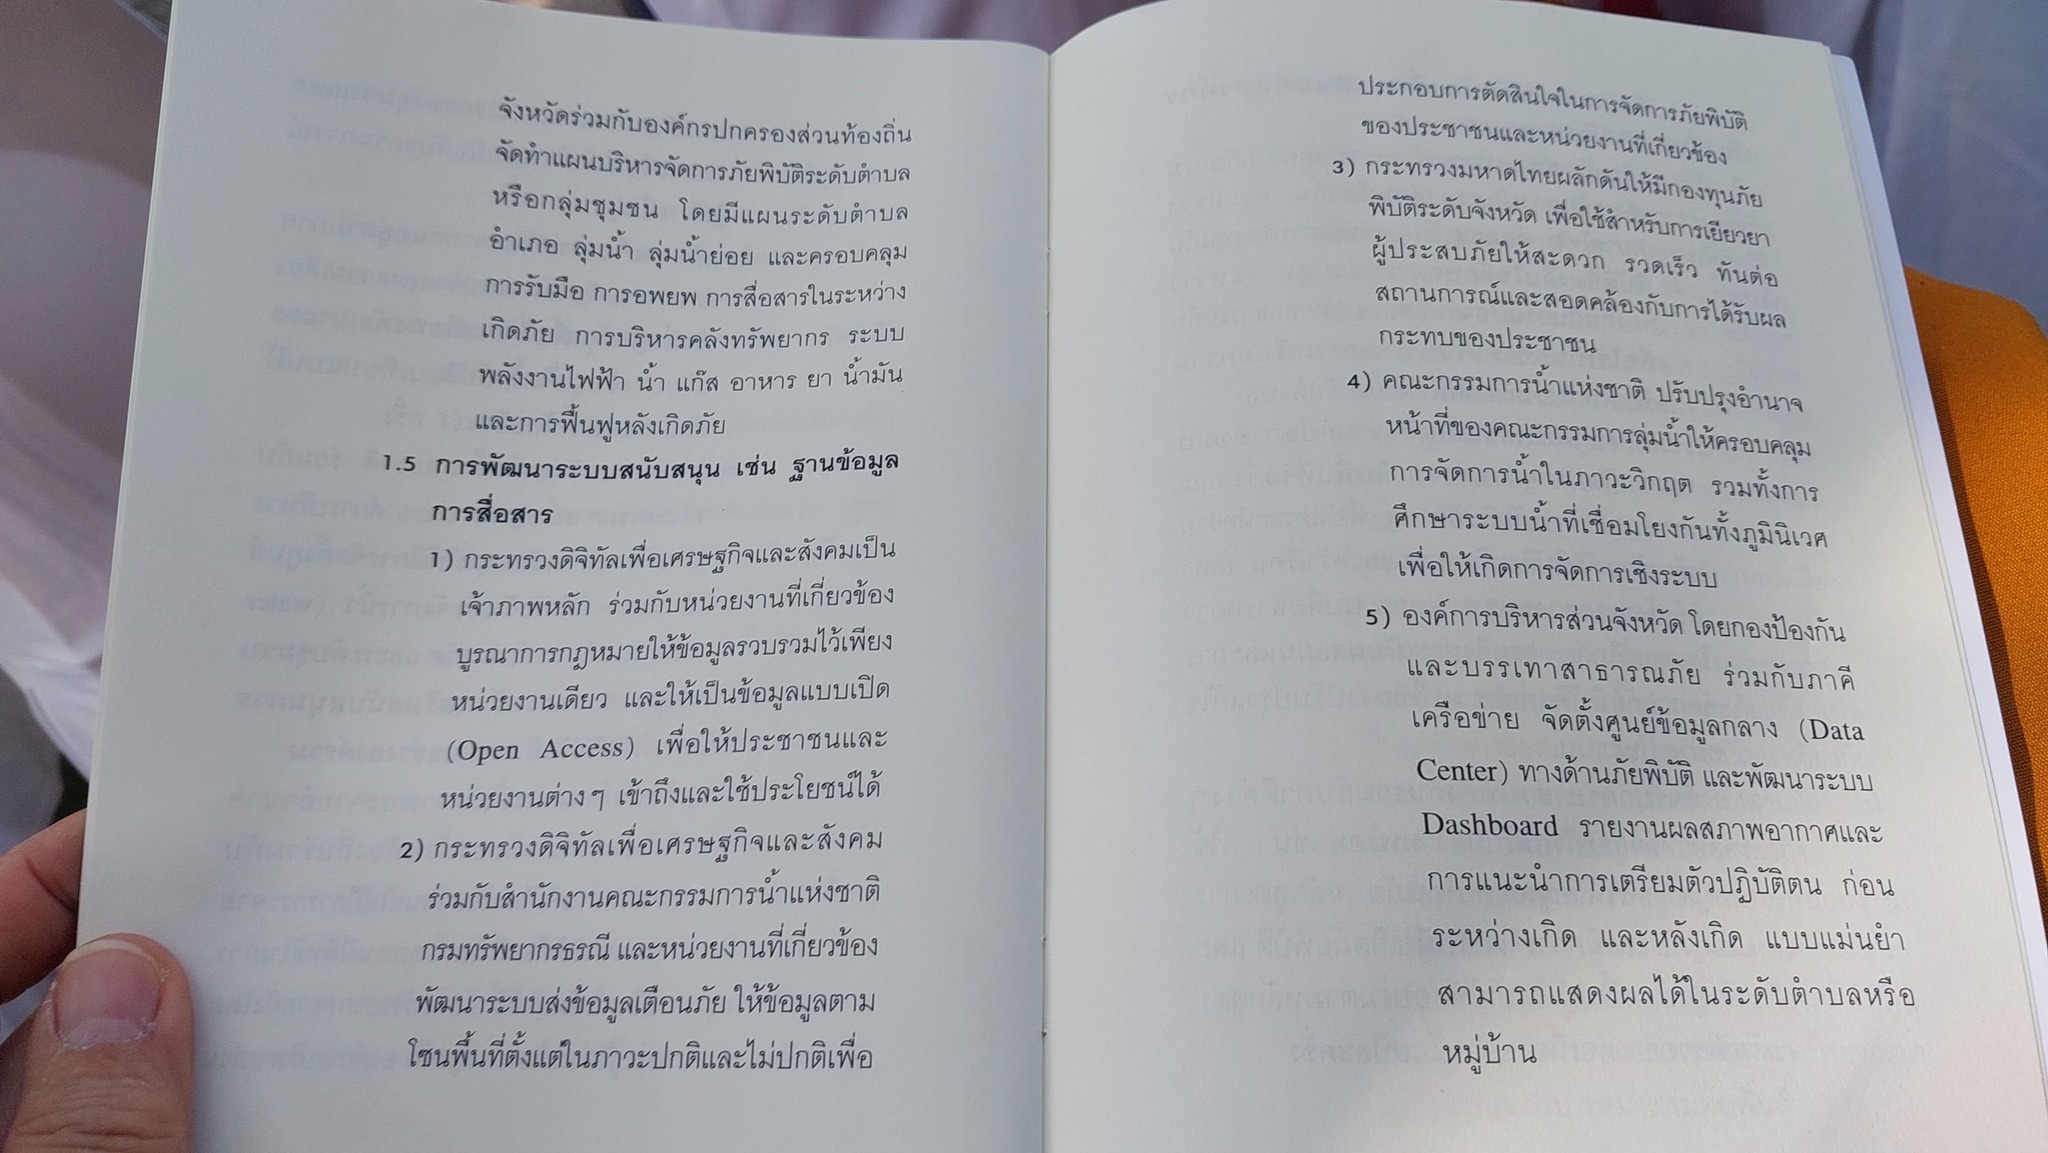 จังหวัดร่วมกับองค์กรปกครองส่วนท้องถิ่น
จัดทำแผนบริหารจัดการภัยพิบัติระดับตำบล
หรือกลุ่มชุมชน โดยมีแผนระดับตำบล
อำเภอ ลุ่มน้ำ ลุ่มน้ำย่อย และครอบคลุม
การรับมือ การอพยพ การสื่อสารในระหว่าง
เกิดภัย การบริหารคลังทรัพยากร ระบบ
พลังงานไฟฟ้า น้ำ แก๊ส อาหาร ยา น้ำมัน
และการฟื้นฟูหลังเกิดภัย
1.5 การพัฒนาระบบสนับสนุน เช่น ฐานข้อมูล
การสื่อสาร
1) กระทรวงดิจิทัลเพื่อเศรษฐกิจและสังคมเป็น
เจ้าภาพหลัก ร่วมกับหน่วยงานที่เกี่ยวข้อง
บูรณาการกฎหมายให้ข้อมูลรวบรวมไว้เพียง
หน่วยงานเดียว และให้เป็นข้อมูลแบบเปิด
(Open Access) เพื่อให้ประชาชนและ
หน่วยงานต่างๆ เข้าถึงและใช้ประโยชน์ได้
2) กระทรวงดิจิทัลเพื่อเศรษฐกิจและสังคม
ร่วมกับสำนักงานคณะกรรมการน้ำแห่งชาติ
กรมทรัพยากรธรณี และหน่วยงานที่เกี่ยวข้อง
พัฒนาระบบส่งข้อมูลเตือนภัย ให้ข้อมูลตาม
โซนพื้นที่ตั้งแต่ในภาวะปกติและไม่ปกติเพื่อ
ประกอบการตัดสินใจในการจัดการภัยพิบัติ
ของประชาชนและหน่วยงานที่เกี่ยวข้อง
3) กระทรวงมหาดไทยผลักดันให้มีกองทุนภัย
พิบัติระดับจังหวัด เพื่อใช้สำหรับการเยียวยา
ผู้ประสบภัยให้สะดวก รวดเร็ว ทันต่อ
สถานการณ์และสอดคล้องกับการได้รับผล
กระทบของประชาชน
4) คณะกรรมการน้ำแห่งชาติ ปรับปรุงอำนาจ
หน้าที่ของคณะกรรมการลุ่มน้ำให้ครอบคลุม
การจัดการน้ำในภาวะวิกฤต รวมทั้งการ
ศึกษาระบบน้ำที่เชื่อมโยงกันทั้งภูมินิเวศ
เพื่อให้เกิดการจัดการเชิงระบบ
5) องค์การบริหารส่วนจังหวัด โดยกองป้องกัน
และบรรเทาสาธารณภัย ร่วมกับภาคี
เครือข่าย จัดตั้งศูนย์ข้อมูลกลาง (Data
Center) ทางด้านภัยพิบัติ และพัฒนาระบบ
Dashboard รายงานผลสภาพอากาศและ
การแนะนำการเตรียมตัวปฏิบัติตน ก่อน
ระหว่างเกิด และหลังเกิด แบบแม่นยำ
สามารถแสดงผลได้ในระดับตำบลหรือ
หมู่บ้าน